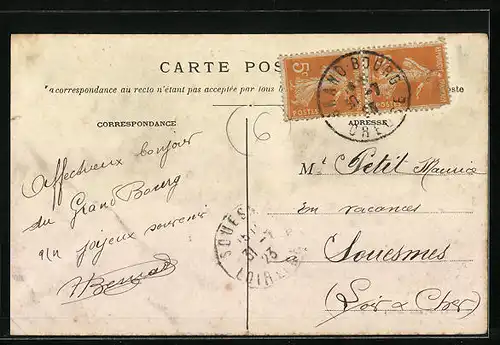 CARTE POS
La correspondance au recto n'étant pas acceptée par tous
oste
CORRESPONDANCE
ADRESSE
5c
POSTES
GRAND BOURG
CREUSE
6
Affectueux bonjour
du Grand Bourg
un joyeux souvenir
Mr Petit Maurice
en vacances
à Souesmes
(Loir & Cher)
SOUES
31
23
LOIR